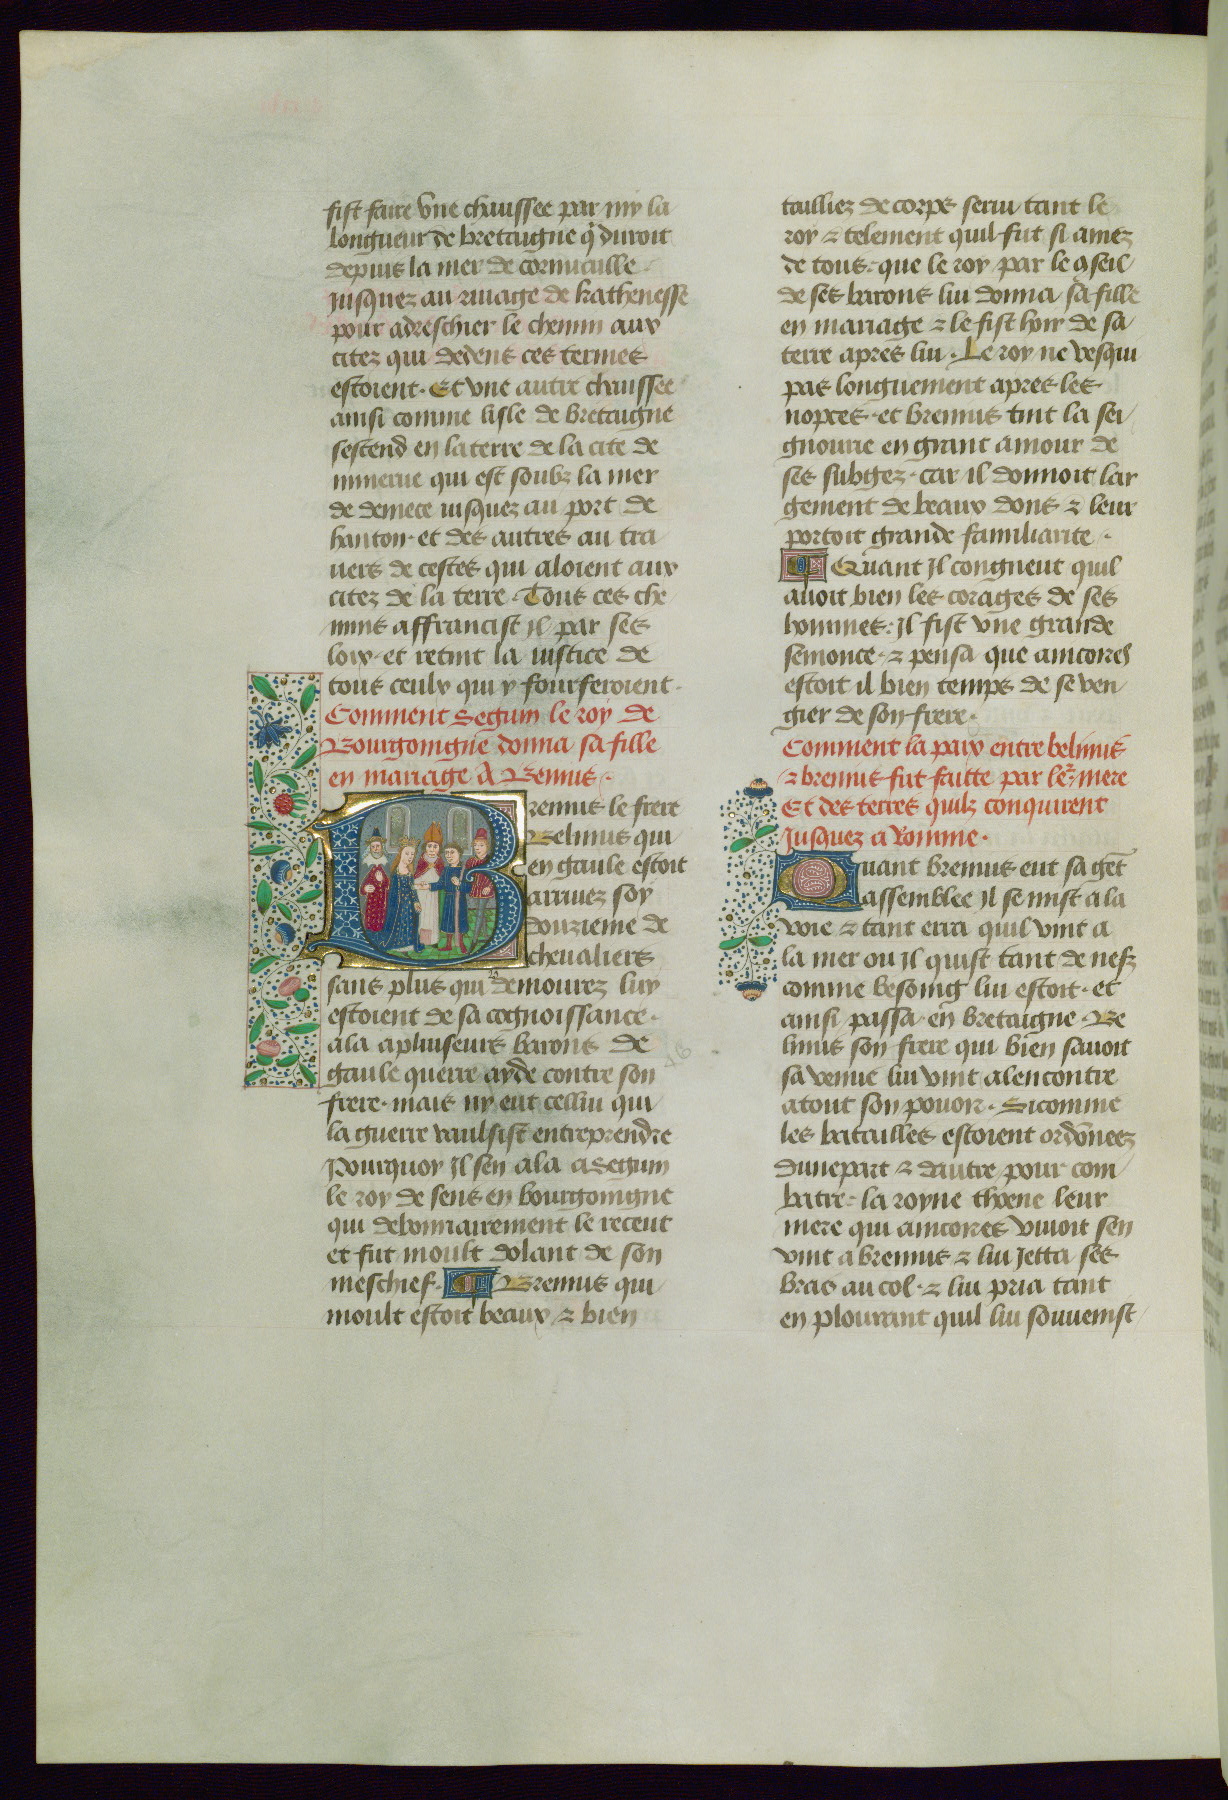 fist faire vne chaussee par my la
longueur de bretaigne q̇ duroit
depuis la mer de cornuaille
jusquez au riuage de kathenesse
pour adreschier le chemin aux
citez qui dedens ces termes
estoient. Et vne autre chaussee
ainsi comme lisle de bretaigne
sestend en laterre de la cite de
minerue qui est soubz la mer
de demece iusquez au port de
hanton. et des autres au tra
uers de cestes qui aloient aux
citez de la terre. Tous ces che
mins affrancist il par ses
loix. et retint la iustice de
tous ceulx qui y fourferoient.
Comment Seguin le roy de
Bourgoingne donna sa fille
en mariage A Bennus.
Brennus le frere
Belinus qui
en gaule estoit
arriuez soy
douzieme de
cheualiers
sans plus qui demourez luy
estoient de sa cognoissance.
ala apluseurs barons de
gaule querre ayde contre son
frere. mais ny eut celluy qui
la guerre vaulsist entreprendre
Pourquoy Il sen ala a Seguin
le roy de sens en bourgoingne
qui debonnairement le receut
et fut moult dolant de son
meschief. Brennus qui
moult estoit beaux ⁊ bien
tailliez de corps serui tant le
roy ⁊ telement quil fut si amez
de tous. que le roy par le ꝯseil
de ses barons lui donna sa fille
en mariage ⁊ le fist hoir de sa
terre apres lui. Le roy ne vesqui
pas longuement apres les
nopces. et brennus tint la sei
gnourie en grant amour de
ses subgez. car il donnoit lar
gement de beaux dons ⁊ leur
portoit grande familiarite.
Quant Il congneut quil
auoit bien les corages de ses
hommes: Il fist vne grande
semonce. ⁊ pensa que aincores
estoit il bien temps de se ven
gier de son frere.
Comment la paix entre belinus
⁊ brennus fut faitte par le᷑ mere
Et des terres quilz conquirent
Jusquez a Romme.
Quant brennus eut sa gēt
assemblee Il se mist a la
voie ⁊ tant erra quil vint a
la mer ou Il quist tant de nefz
comme besoing lui estoit. et
ainsi passa en bretaigne. Be
linus son frere qui bien sauoit
sa venue lui vint alencontre
atout son pouoir. Sicomme
les batailles estoient ordōnees
dunepart ⁊ dautre pour com
batre: la royne thoene leur
mere qui aincores viuoit sen
vint a brennus ⁊ lui Jetta ses
bras au col. ⁊ lui pria tant
en plourant quil lui souuenist